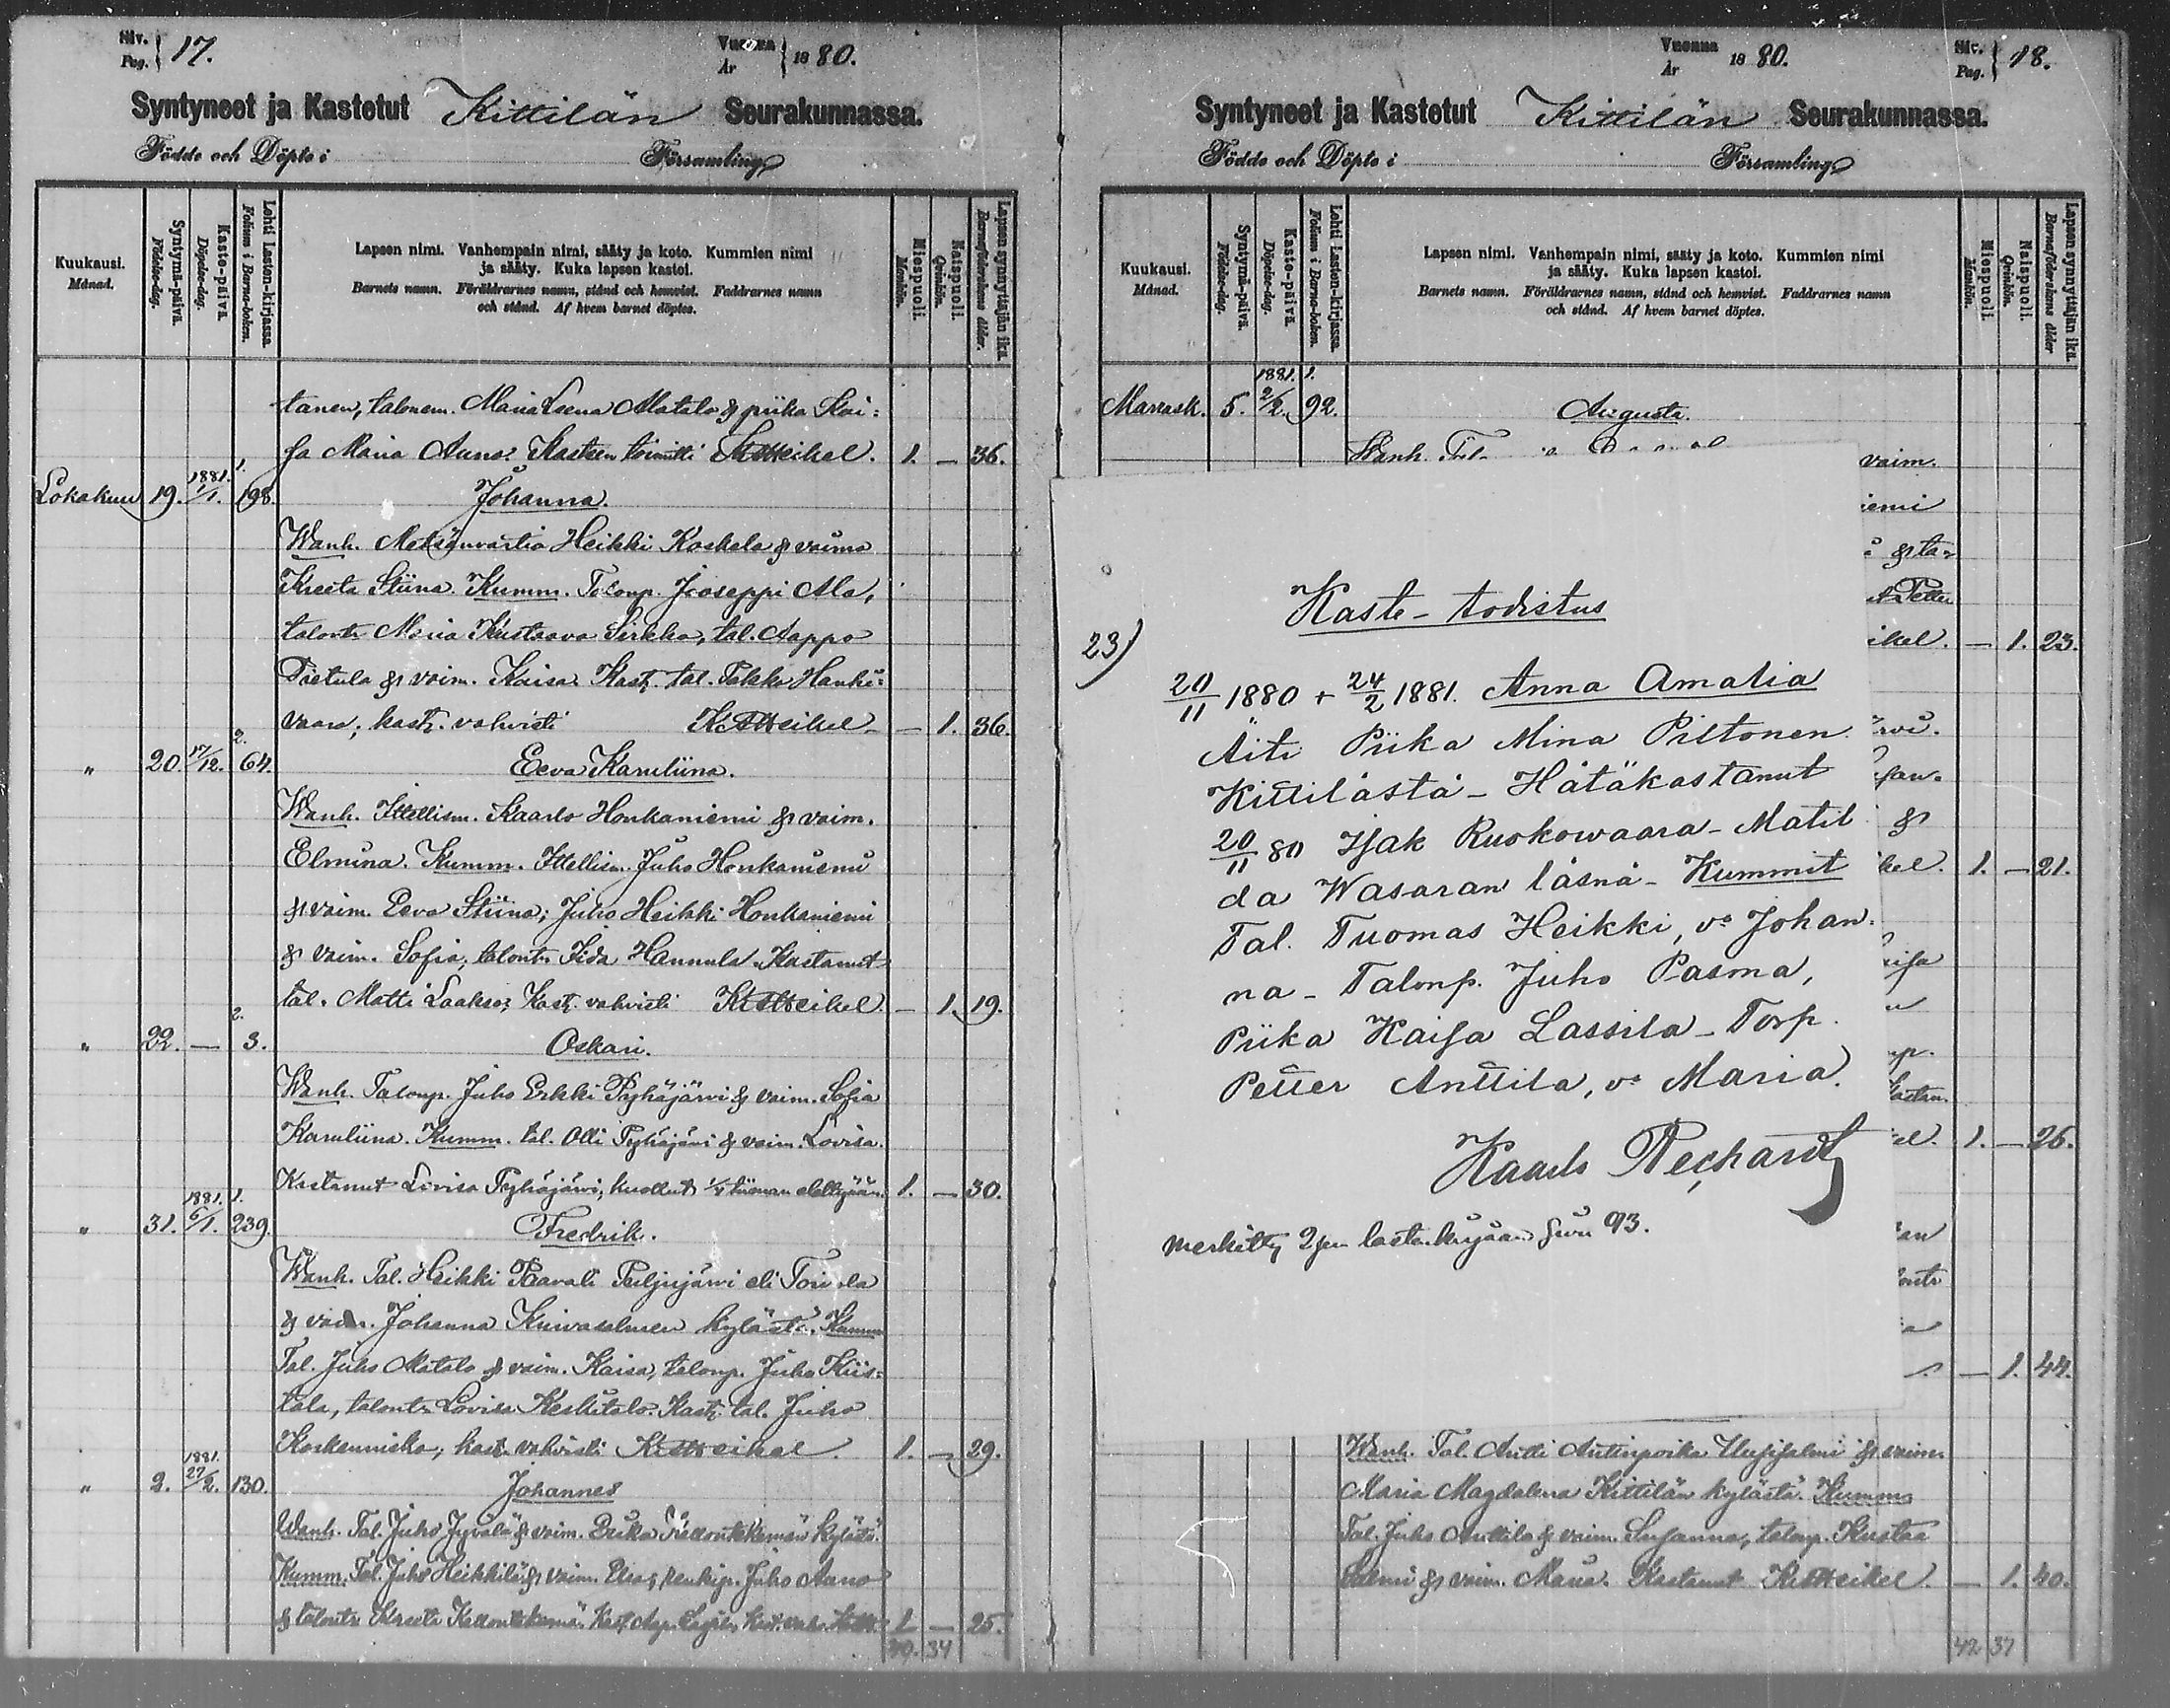 Siv.
Pag. 17.
Vuonna
År 1880.
Syntyneet ja Kastetut Kittilän Seurakunnassa.
Födde och Döpte i Församling
Kuukausi.
Månad.
Syntymä-päivä.
Födelse-dag.
Kaste-päivä.
Döpelse-dag.
Lehti Lasten-kirjassa.
Folium i Barna-boken.
Lapsen nimi. Vanhempain nimi, sääty ja koto. Kummien nimi
ja sääty. Kuka lapsen kastoi.
Barnets namn. Föräldrarnes namn, stånd och hemvist. Faddrarnes namn
och stånd. Af hvem barnet döptes.
Miespuoli.
Mankön.
Naispuoli.
Qvinkön.
Lapsen synnyttäjän ikä.
Barnaföderskans ålder.
tanen, talonem. Maria Leena Alatalo & piika Kai:
sa Maria Auno. Kasteen toimitti 1. — 36.
Lokakuu 19. 1881. 1/1. 1. 198. Johanna.
Wanh. Metsänvartia Heikki Koskela & vaimo
Kreeta Stiina. Kumm. Talonp. Jooseppi Ala,
talontr Maria Kustaava Sirkka, tal. Aappo
Pietula & vaim. Kaisa. Kast. tal. Pekka Hanhi:
vaara; kast. vahvisti — 1. 36.
" 20. 17/12. 2. 64. Eeva Karuliina.
Wanh. Ittellism. Kaarlo Honkaniemi & vaim.
Elmina. Kumm. Ittellism. Juho Honkaniemi
& vaim. Eeva Stiina; Juho Heikki Honkaniemi
& vaim. Sofia; talontr Iida Hannula. Kastanut
tal. Matti Laakso; Kast. vahvisti — 1. 19.
" 22. — 2. 3. Oskari.
Wanh. Talonp. Juho Erkki Pyhäjärvi & vaim. Sofia
Karuliina. Kumm. tal. Olli Pyhäjärvi & vaim. Lovisa.
Kastanut Lovisa Pyhäjärvi; kuollut 1/4 tiiman elettyään. 1. — 30.
" 31. 1881. 6/1. 1. 239. Fredrik.
Wanh. Tal. Heikki Paavali Puljujärvi eli Toivola
& vaim. Johanna Kuivasalmen kylästä. Kumm
Tal. Juho Alatalo & vaim. Kaisa, talonp. Juho Kiis:
tala, talontr Lovisa Keskitalo. Kast. tal. Juho
Koskenniska; kast. vahvisti 1. — 29.
" 2. 1881. 27/2. 130. Johannes
Wanh. Tal. Juho Jyvälä & vaim. Erika Kellontekemän kylästä.
Kumm. Tal. Juho Heikkilä & vaim. Elsa; renkip. Juho Aano
& talontr Kreeta 1 — 25.
40. 34
Vuonna
År 1880.
Siv.
Pag. 18.
Syntyneet ja Kastetut Kittilän Seurakunnassa.
Födde och Döpte i Församling
Kuukausi.
Månad.
Syntymä-päivä.
Födelse-dag.
Kaste-päivä.
Döpelse-dag.
Lehti Lasten-kirjassa.
Folium i Barna-boken.
Lapsen nimi. Vanhempain nimi, sääty ja koto. Kummien nimi
ja sääty. Kuka lapsen kastoi.
Barnets namn. Föräldrarnes namn, stånd och hemvist. Faddrarnes namn
och stånd. Af hvem barnet döptes.
Miespuoli.
Mankön.
Naispuoli.
Qvinkön.
Lapsen synnyttäjän ikä.
Barnaföderskans ålder
Marrask. 5. 1881. 2/2. 1. 92. Augusta.
Wanh. vaim.
iemi
& ta-
Petter
ikel. — 1. 23.
Kaste-todistus
23) 20/11 1880 + 24/2 1881. Anna Amalia
Äiti Piika Mina Piltonen
Kittilästä - Hätäkastanut
20/11 80 Isak Ruokowaara - Matil
da Wasaran läsnä - Kummit
Tal. Tuomas Heikki, vo Johan
na - Talonp. Juho Pasma,
Piika Kaisa Lassila - Torp.
Petter Anttila, vo Maria.
Kaarlo
merkitty 2sen lastenkirjaan sivu 93.
&
kel. 1. — 21.
1. — 26.
— 1. 44.
Wanh. Tal. Antti Antinpoika & vaim.
Maria Magdalena Kittilän kylästä. Kumm.
Tal. Juho Anttila & vaim. Susanna, talonp. Kustaa
Salmi & vaim. Maria. Kastanut — 1. 40.
42. 37